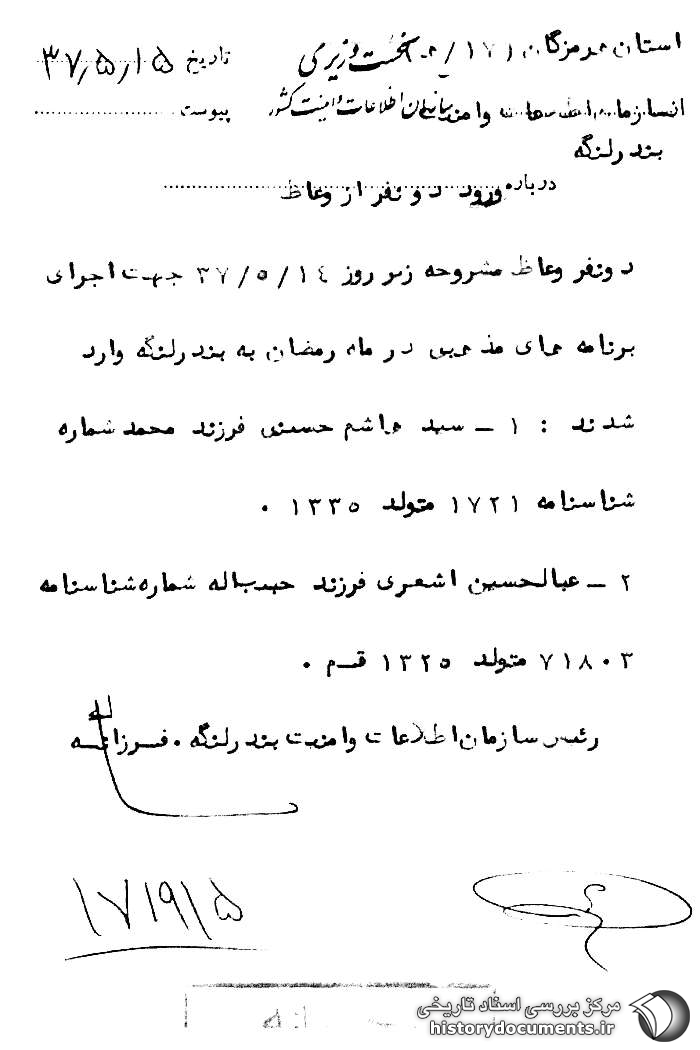 استان هرمزگان ۱۷۱/ه‍ ۱ نخست وزیری تاریخ ۳۷٫۵٫۱۵
از سازمان اطلاعات و امنیت سازمان اطلاعات و امنیت کشور پیوست
بندرلنگه
درباره ورود دو نفر از وعاظ
دونفر وعاظ مشروحه زیر روز ۳۷/۵/۱۴ جهت اجرای
برنامه های مذهبی در ماه رمضان به بندرلنگه وارد
شدند : ۱ ـ سید هاشم حسینی فرزند محمد شماره
شناسنامه ۱۷۲۱ متولد ۱۳۳۵ ۰
۲ ـ عبالحسین اشعری فرزند حبیب‌اله شماره شناسنامه
۷۱۸۰۳ متولد ۱۳۲۵ قم ۰
رئیس سازمان اطلاعات و امنیت بندرلنگه ۰ فرزانه
۱۷۱۹۱۵
مرکز بررسی اسناد تاریخی
historydocuments.ir